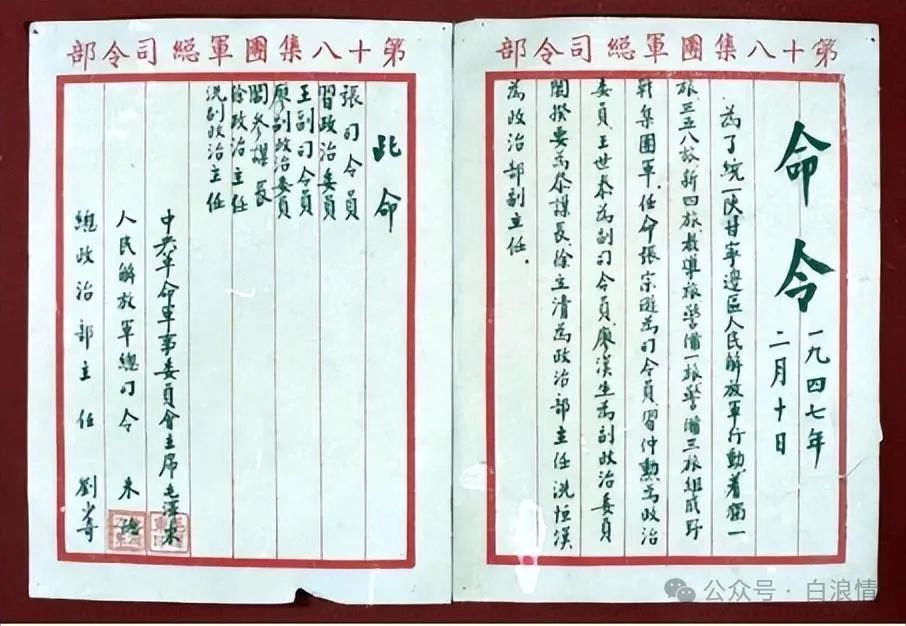 第十八集團軍總司令部
命令
一九四七年
二月十日
為了統一陝甘寧邊區人民解放軍行動,着獨一
旅三五八旅、新四旅、教導旅、警備一旅、警備三旅組成野
戰集團軍,任命張宗遜為司令員習仲勳為政治
委員王世泰為副司令員、廖漢生為副政治委員
閻揆要為參謀長、徐立清為政治部主任冼恒漢
為政治部副主任.
第十八集團軍總司令部
此命
張司令員
習政治委員
王副司令員
廖副政治委員
閻參謀長
徐政治主任
冼副政治主任
中央革命軍事委員會主席毛澤東
人民解放軍總司令 朱德
總政治部主任 劉少奇
公众号 · 白浪情